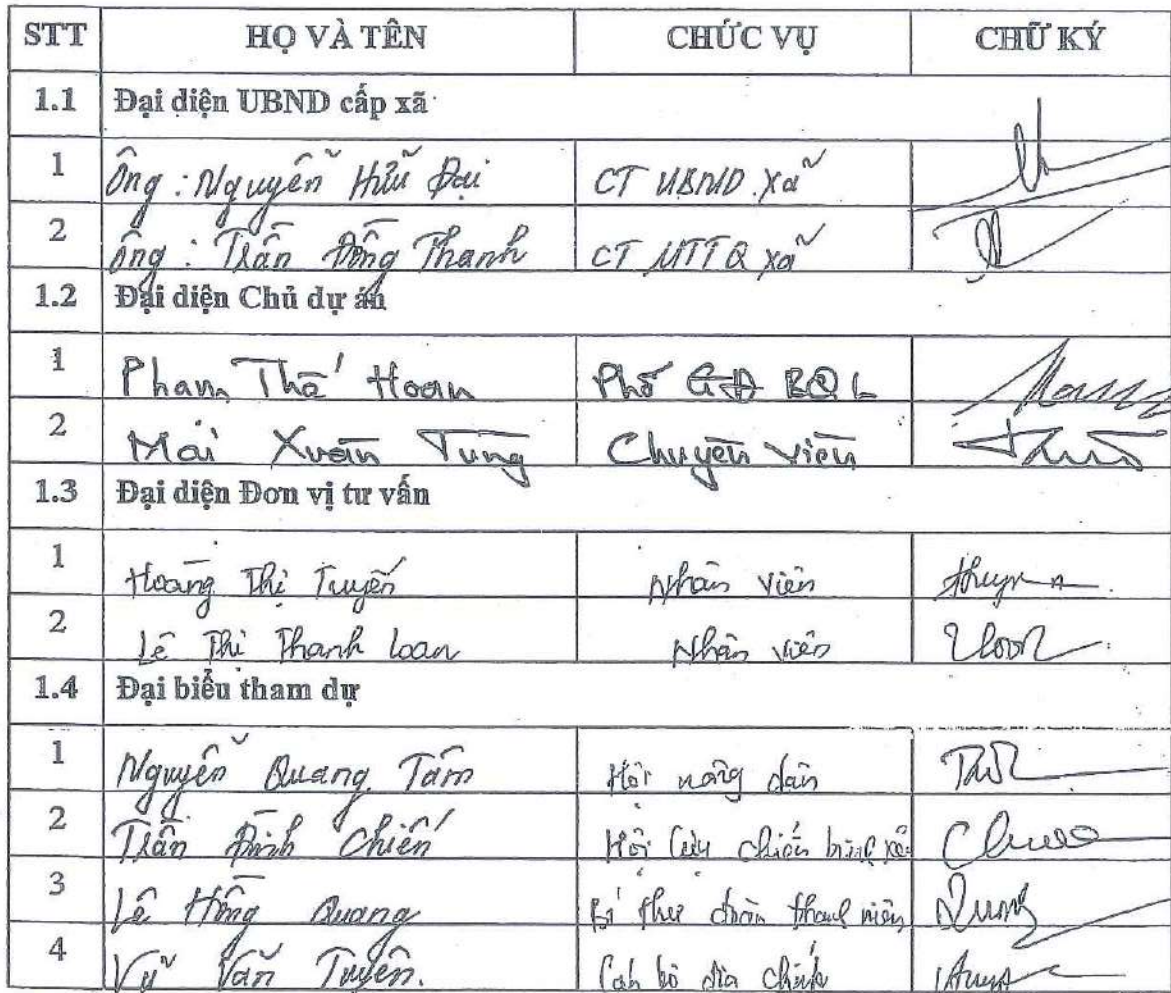 STT HỌ VÀ TÊN CHỨC VỤ CHỮ KÝ
1.1 Đại diện UBND cấp xã
1 Ông : Nguyễn Hữu Đại CT UBND xã
2 Ông : Trần Đồng Thanh CT MTTQ xã
1.2 Đại diện Chủ dự án
1 Phạm Thế Hoan Phó GĐ BQL
2 Mai Xuân Tùng Chuyên viên
1.3 Đại diện Đơn vị tư vấn
1 Hoàng Thị Tuyến Nhân viên
2 Lê Thị Thanh Loan Nhân viên
1.4 Đại biểu tham dự
1 Nguyễn Quang Tám Hội nông dân
2 Trần Đình Chiến Hội Cựu chiến binh xã
3 Lê Hồng Quang Bí thư đoàn thanh niên
4 Vũ Văn Tuyên. Cán bộ địa chính